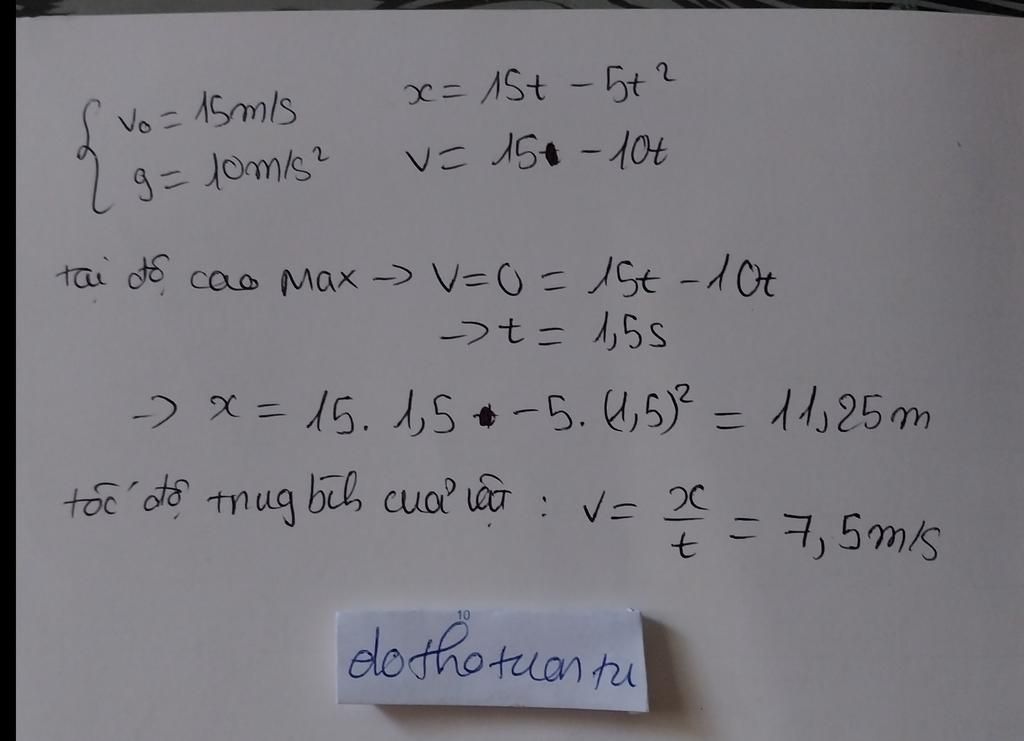 v₀ = 15m/s x = 15t - 5t²
g = 10m/s² v = 15 - 10t
tại độ cao Max -> V=0 = 15t - 10t
-> t = 1,5s
-> x = 15. 1,5 - 5. (1,5)² = 11,25m
tốc độ trung bình của vật : v = x/t = 7,5m/s
10
dothotuantu